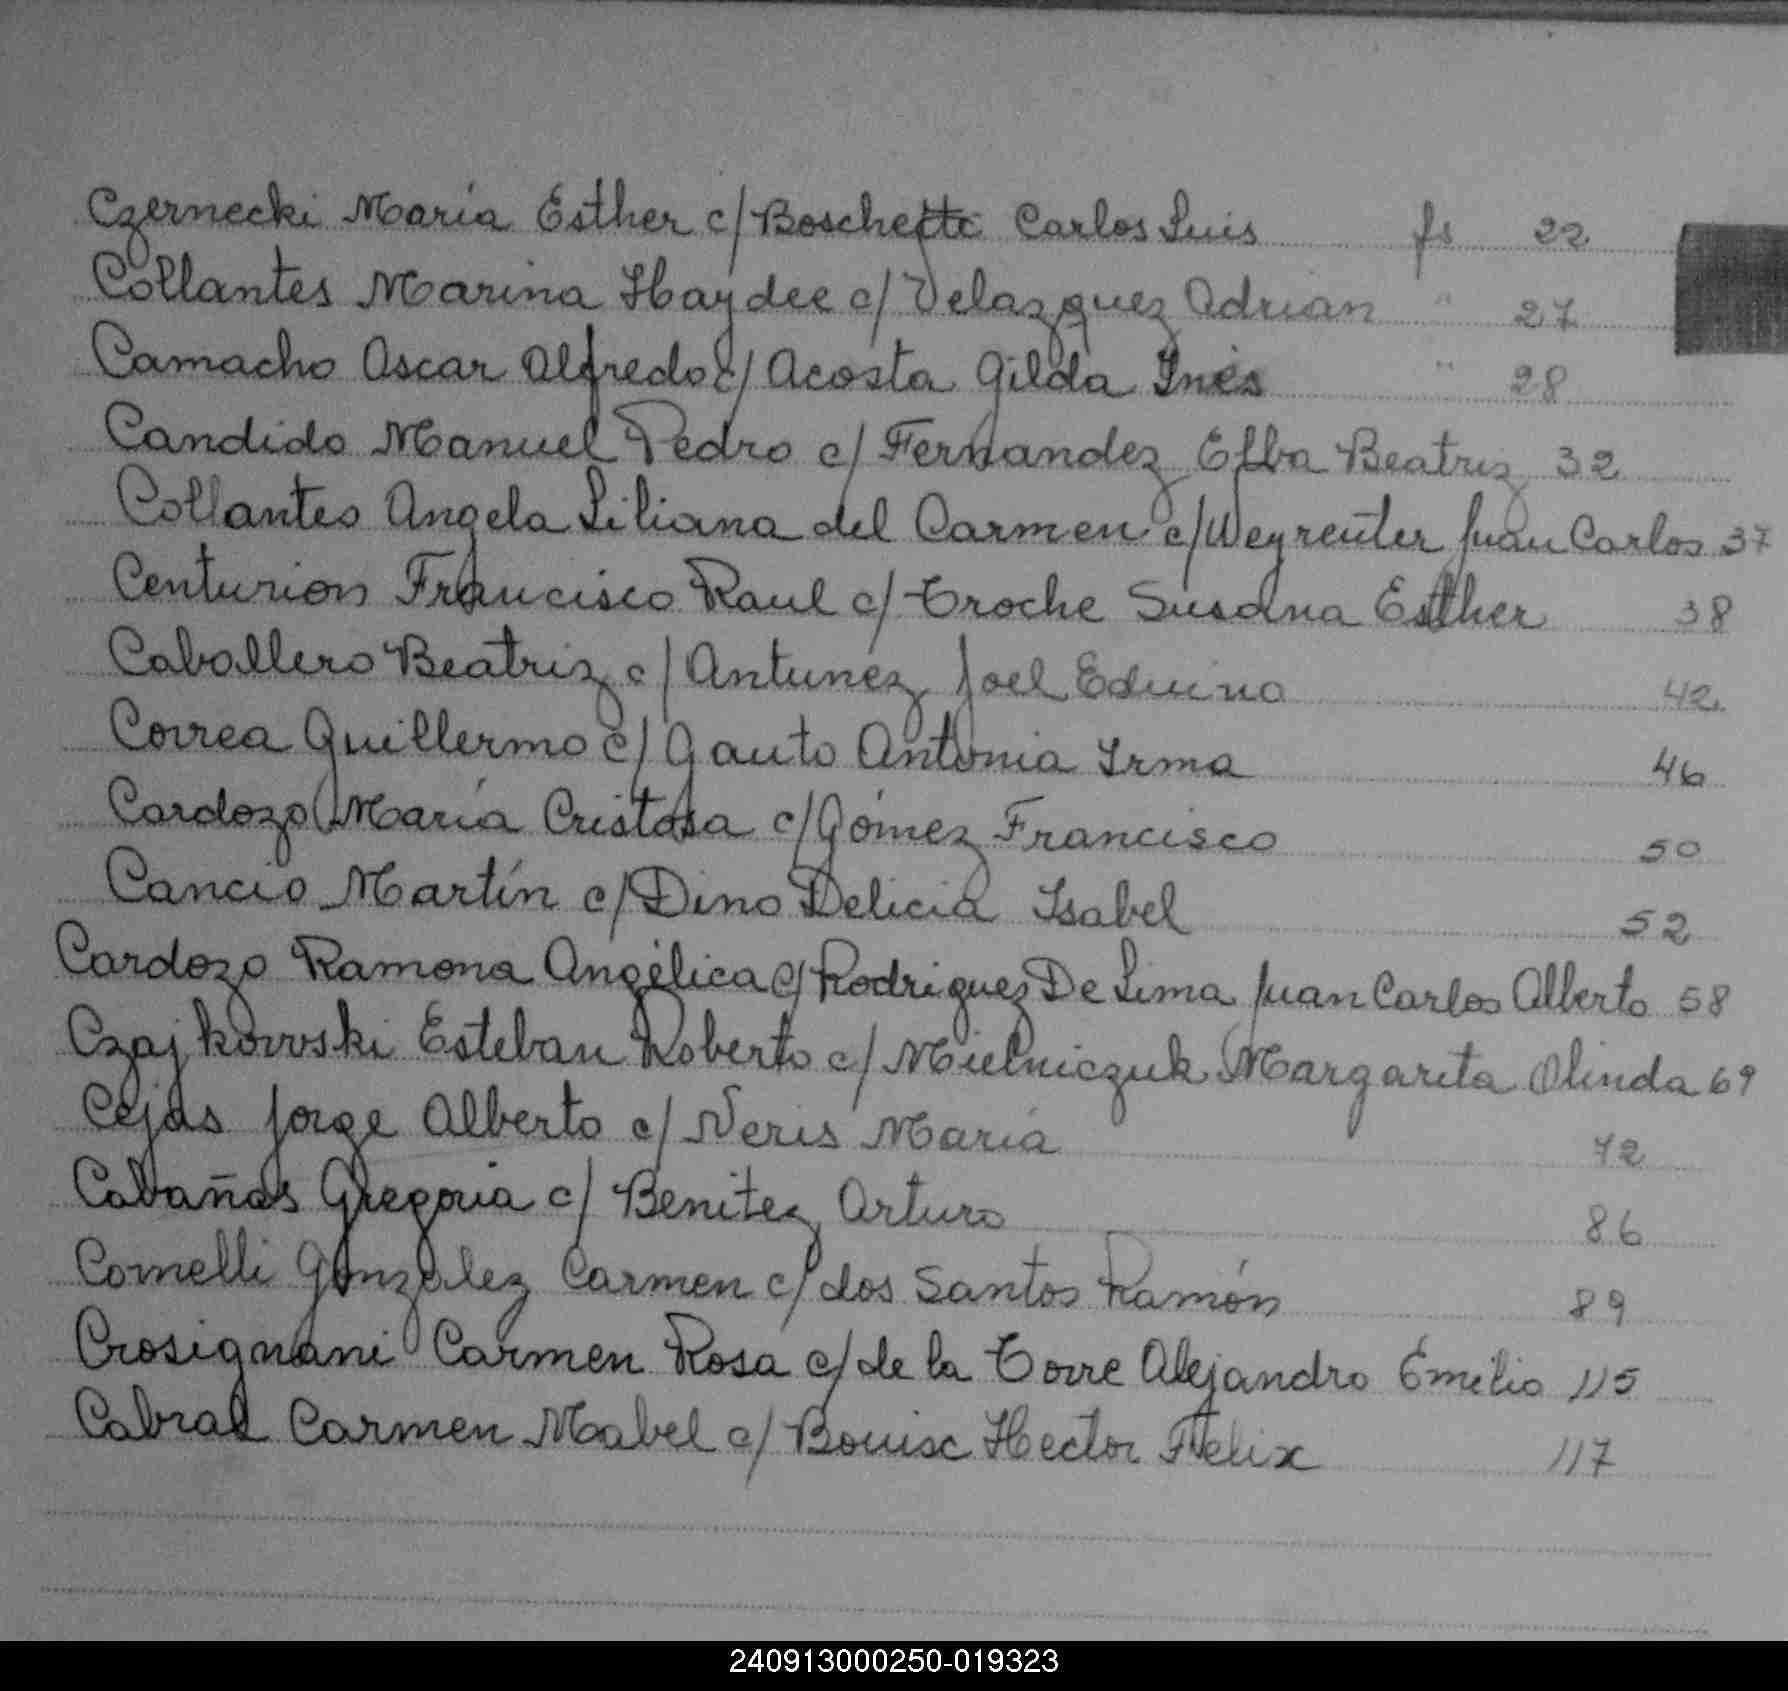 Czernecki María Esther c/ Boschetti Carlos Luis fs 22
Collantes Marina Haydee c/ Velazquez Adrian " 27
Camacho Oscar Alfredo c/ Acosta Gilda Inés " 28
Candido Manuel Pedro c/ Fernandez Elba Beatriz 32
Collantes Angela Liliana del Carmen c/ Weyreuter Juan Carlos 37
Centurion Francisco Raul c/ Troche Susana Esther 38
Caballero Beatriz c/ Antunez Joel Eduino 42
Correa Guillermo c/ Gauto Antonia Irma 46
Cardozo María Cristosa c/ Gómez Francisco 50
Cancio Martín c/ Dino Delicia Isabel 52
Cardozo Ramona Angélica c/ Rodriguez De Lima Juan Carlos Alberto 58
Czajkowski Esteban Roberto c/ Mielniczuk Margarita Olinda 69
Cejas Jorge Alberto c/ Neris María 72
Cabañas Gregoria c/ Benitez Arturo 86
Comelli Gonzalez Carmen c/ dos Santos Ramón 89
Crosignani Carmen Rosa c/ de la Torre Alejandro Emilio 115
Cabral Carmen Mabel c/ Bouisc Hector Felix 117
240913000250-019323